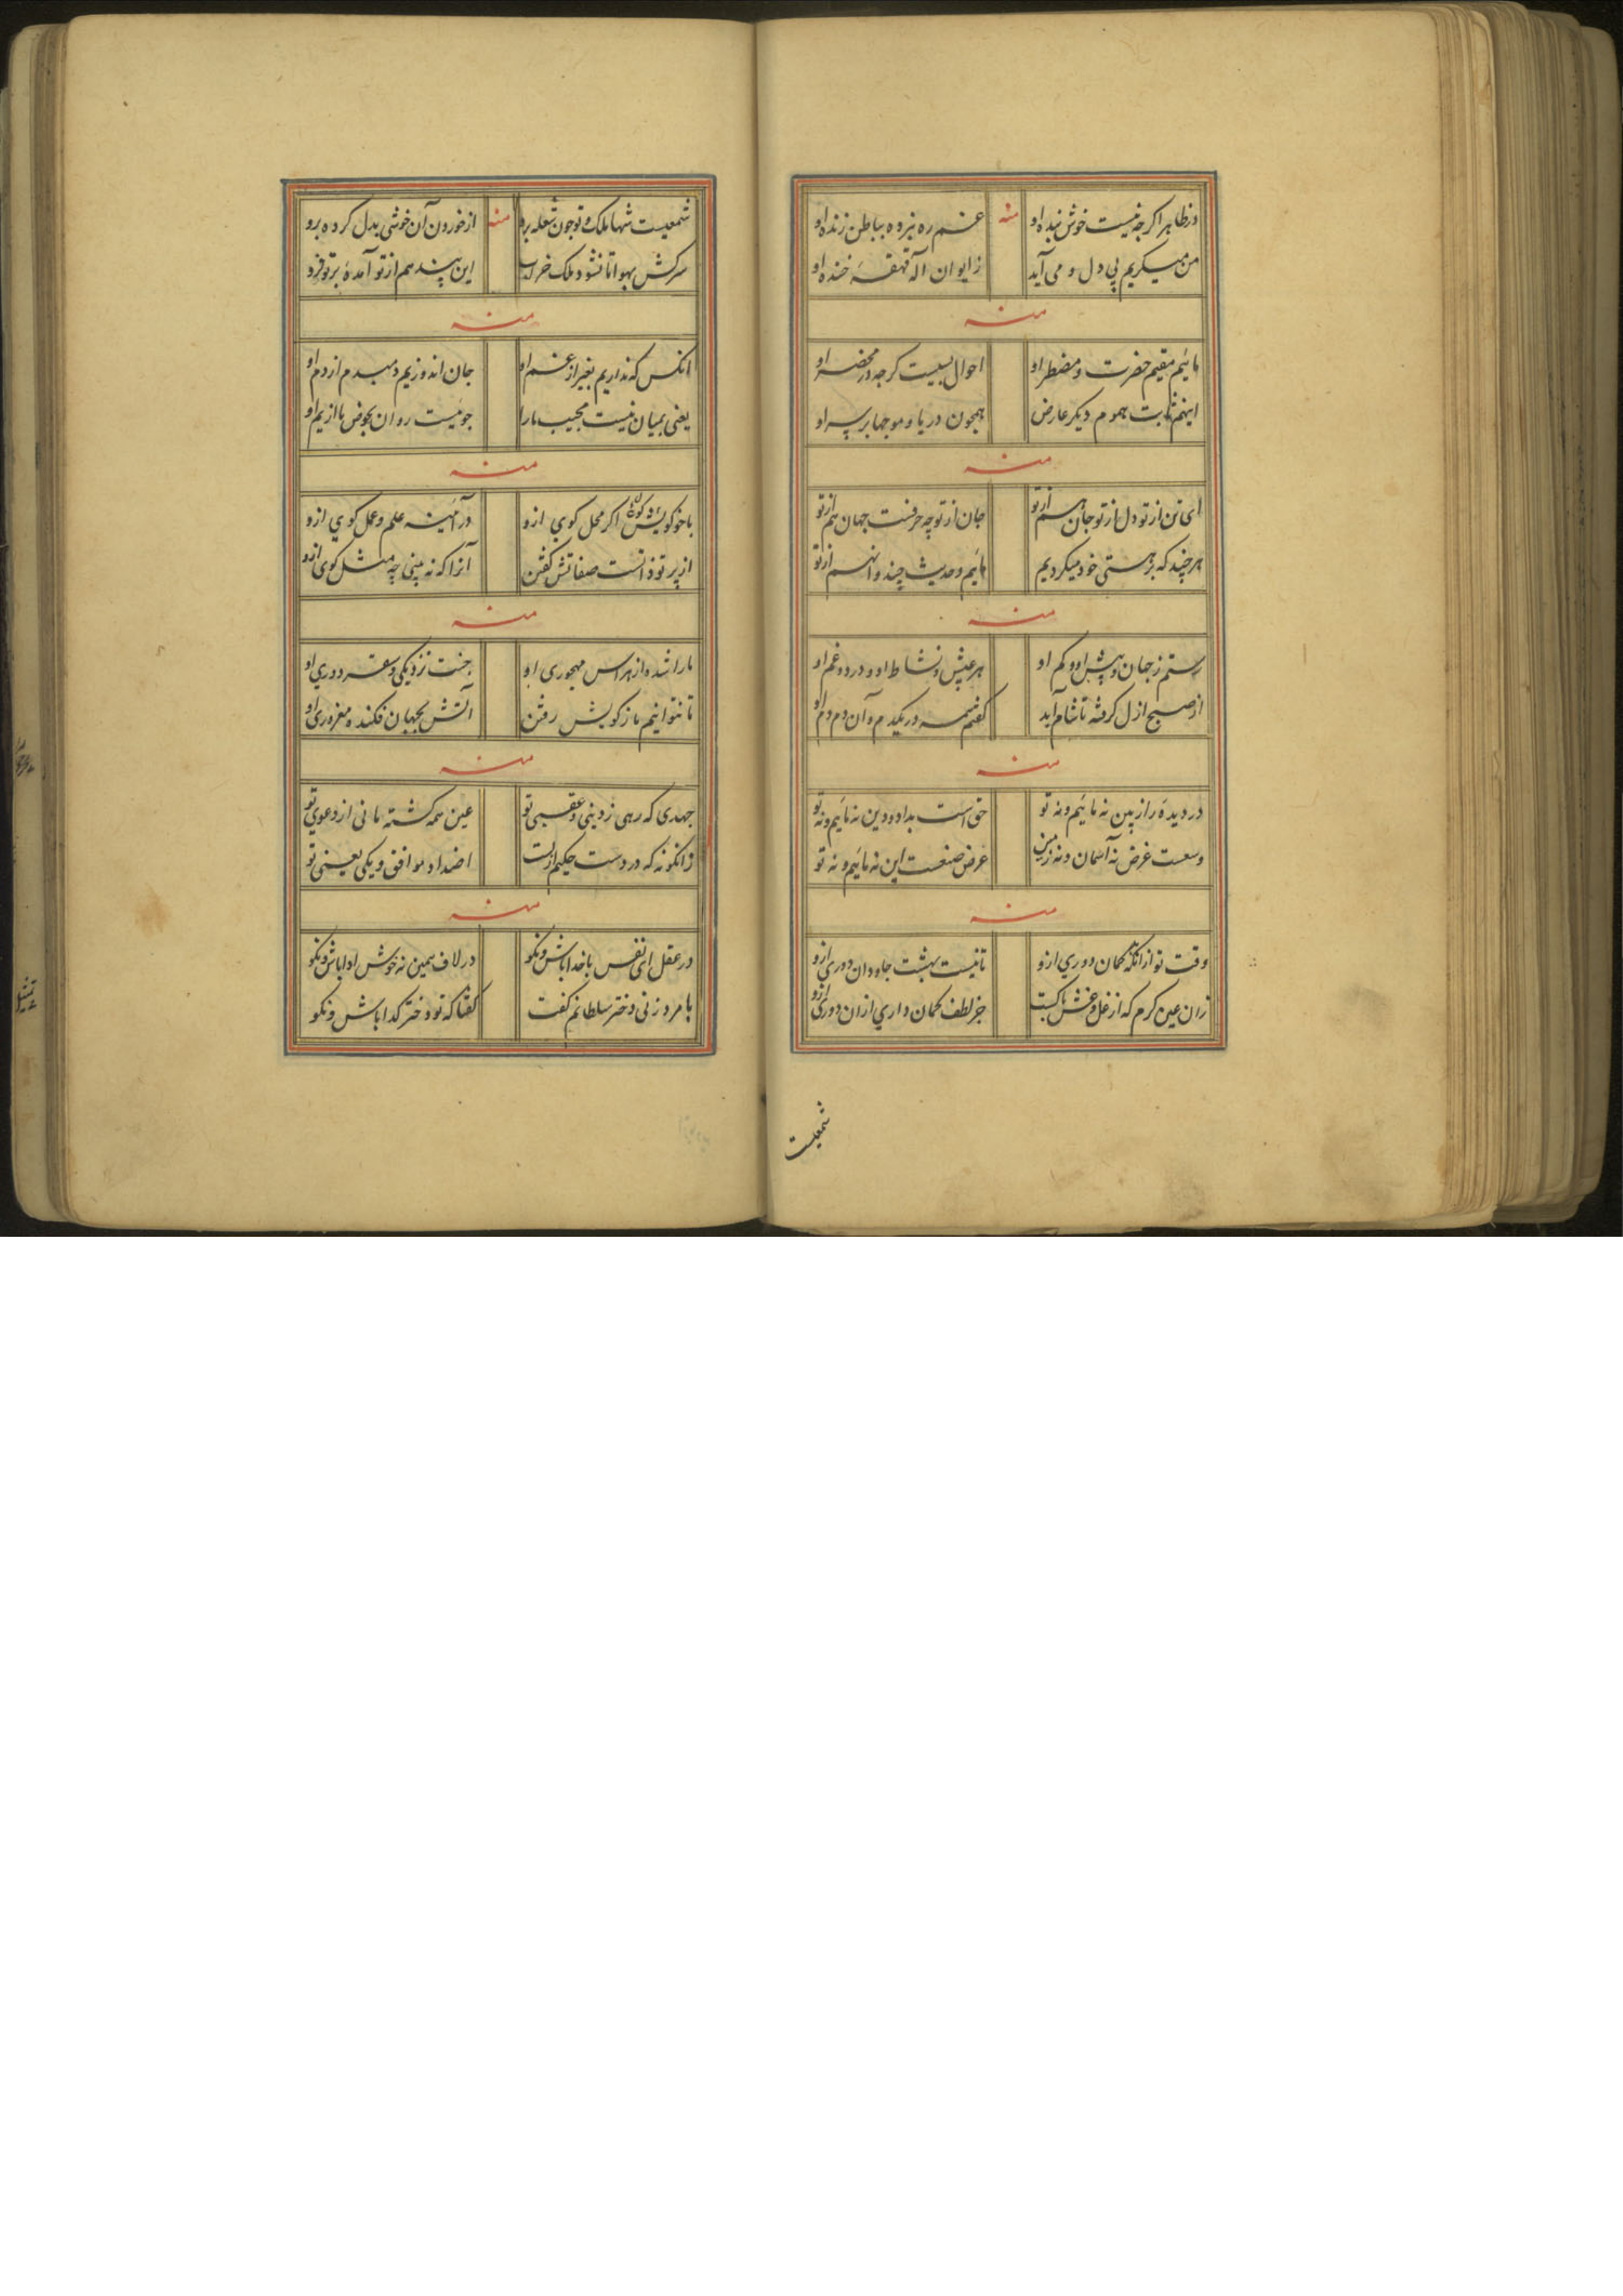 در ظاهر اگرچه نیست خوش بنده او
منه
غم ره نبرده بباطن زنده او
من میکریم بی دل و می آید
ز ایوان اله قهقهه خنده او
منه
مائیم مقیم حضرت و مضطر او
احوال بسیست کرچه در محضر او
اینم ثابت هموم دیکر عارض
همچون دریا و موجها بر سر او
منه
ای تن از تو دل از تو جان هم از تو
جان از تو چه حرفست جهان هم از تو
هر چند که بر هستی خود میکردیم
مائیم و حدیث چند و آنهم از تو
منه
رستم ز جهان و بیش او و کم او
هر عیش و نشاط او و درد و غم او
از صبح ازل کرفته تا شام ابد
کفتم همه در یکدم و آن دم دم او
منه
در دیده راز بین نه مائیم و نه تو
حق است بداد و دین نه مائیم و نه تو
وسعت غرض نه آسمان و نه زمین
عرض صنعست این نه مائیم و نه تو
منه
وقت تو از انکه کمان دوری ازو
تا نیست بهشت جاودان دوری ازو
زان عین کرم که از غل و غش پاکست
جز لطف کمان داری ازان دوری ازو
شمعیست
شمعیست شها ملک و تو چون شعله برو
منه
از خوردن آن خوشی بدل کرده برو
سرکش بهوا تا نشود ملک خراب
این پند هم از تو آمده بر تو فرو
منه
انکس که نداریم بغیر از غم او
جان اندوزیم دمبدم از دم او
یعنی بمیان نیست مجیب ما را
جوئیست روان بحوض ما از یم او
منه
با خود کویش اکر محل کوی ازو
در آئینه علم و عمل کوی ازو
از پرتو ذاتست صفاتش کفتن
آنرا که نه بینی چه مثل کوی ازو
منه
ما را شده از هراس مهجوری او
جنت نزدیکی و سقر دوری او
تا نتوانیم باز کویش رفتن
آتش بجهان فکنده مغروری او
منه
جهدی که رهی ز دینی و عقبی تو
عین همه کشته مانی از دعوی تو
زانکونه که در دست حکیم ازلست
اضداد موافق و یکی یعنی تو
منه
در عقل ای نفس با خدا باش و نکو
در لاف همین نه خوش ادا باش و نکو
با مرد زنی دختر سلطانم کفت
کفتا که تو دختر کدا باش و نکو